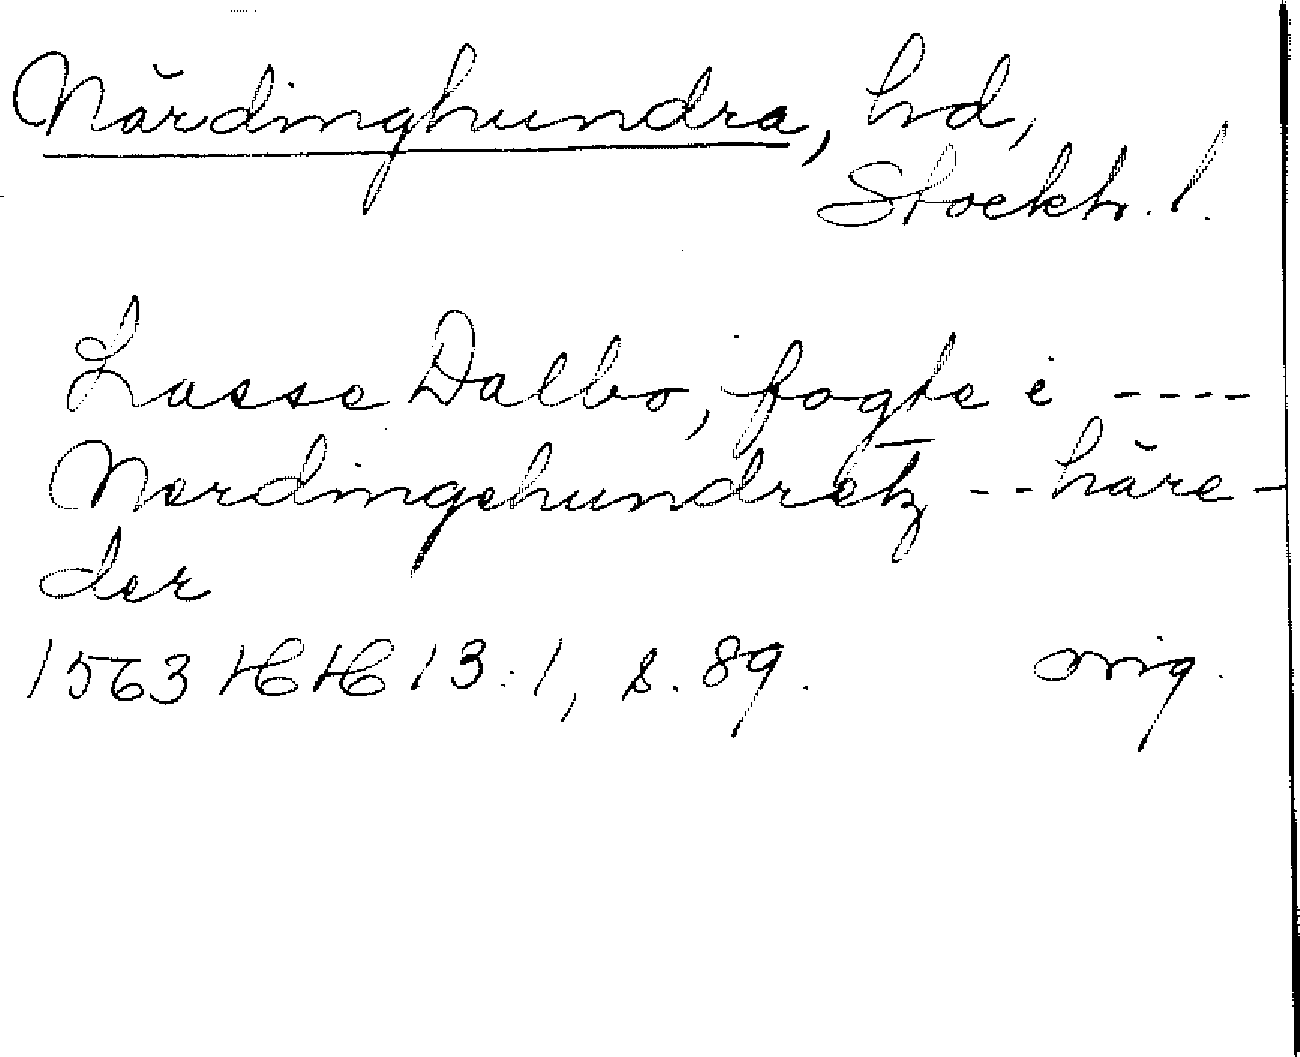 Närdinghundra, hd,
Stockh. l.
Lasse Dalbo, fogte i ----
Nerdingehundretz -- häre-
der
1563 HH 13:1, s. 89. orig.